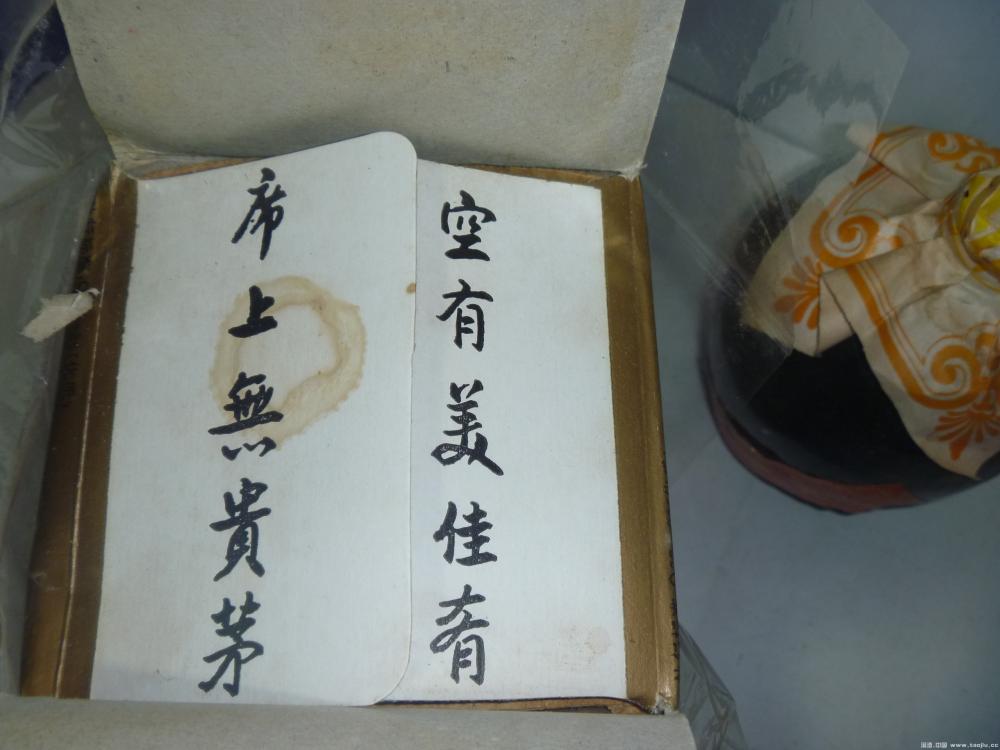 空有美佳肴
席上無貴茅
淘酒.中国 www.taojiu.cc